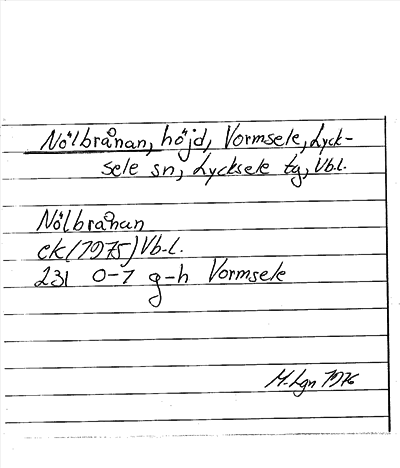 Nölbrånan, höjd, Vormsele, Lyck-
sele sn, Lycksele tg, Vb.l.
Nölbrånan
ek (1975) Vb.l.
231 0-7 g-h Vormsele
M. Lgn 1976